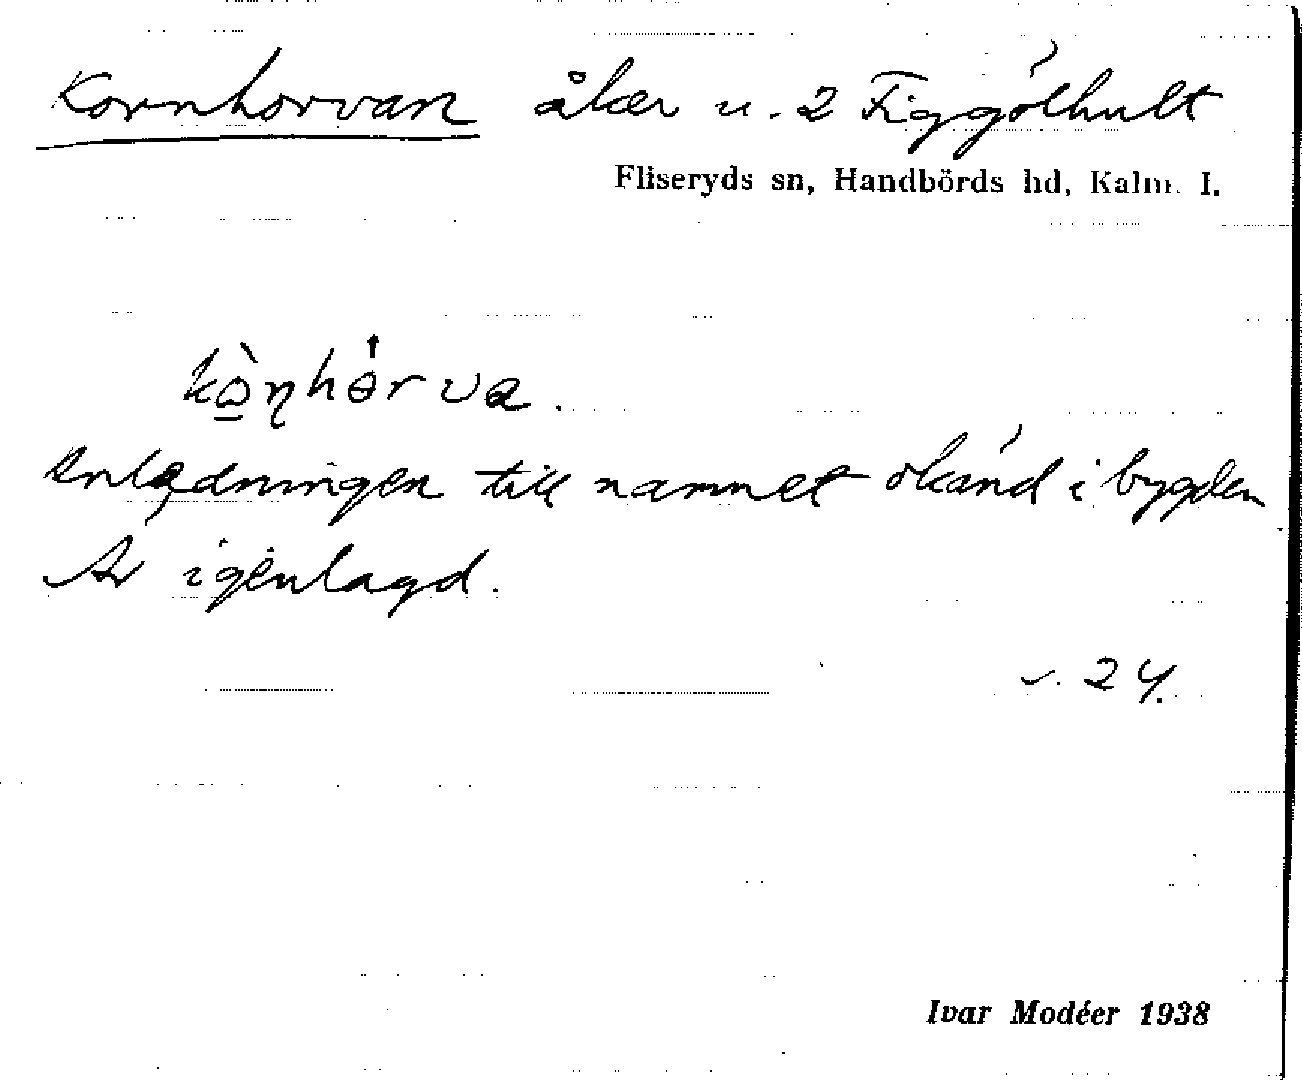 Kornhorvan åker u. 2 Figgölhult
Fliseryds sn, Handbörds hd, Kalm. l.
kòn̥hɵ́rva.
Anledningen till namnet okänd i bygden
Är igenlagd.
s. 24.
Ivar Modéer 1938